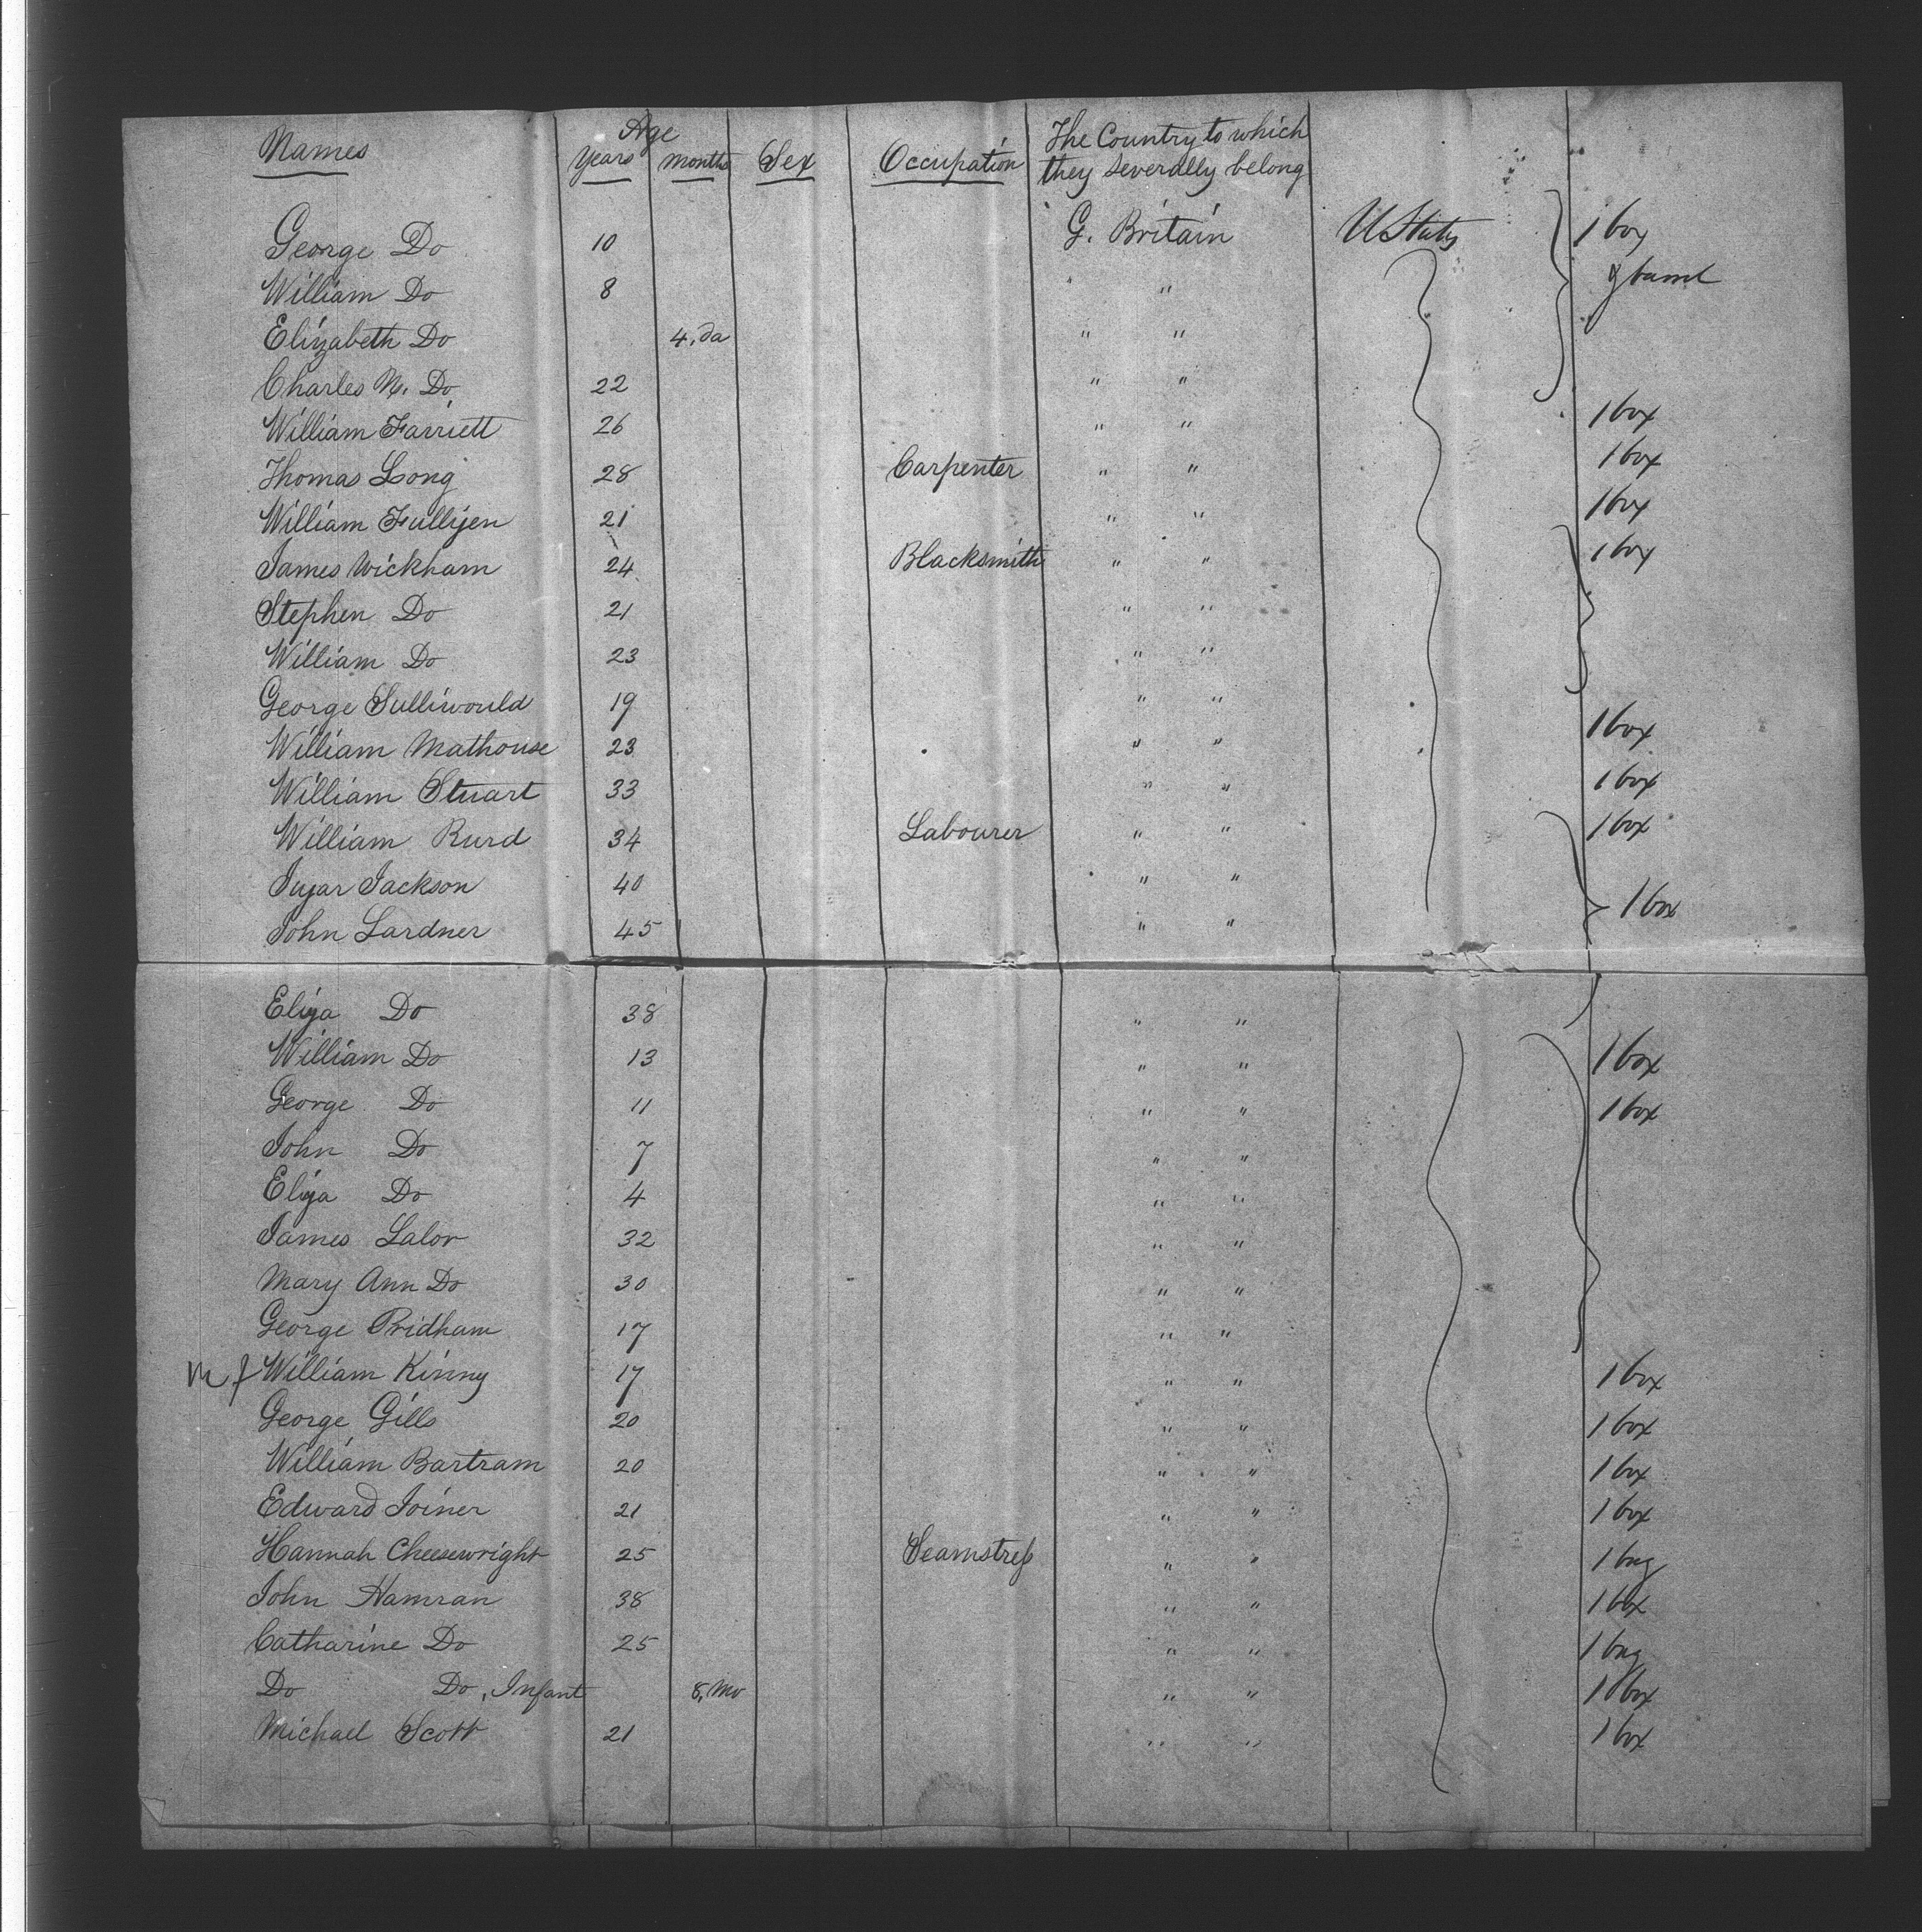 Names Age Years Months Sex Occupation The Country to which they severally belong
George Do 10 G. Britain U States 1 box
William Do 8 " "
Elizabeth Do 4, da " "
Charles M. Do 22 " "
William Farriett 26 " " 1 box
Thomas Long 28 Carpenter " " 1 box
William Fullijen 21 " " 1 box
James Wickham 24 Blacksmith " " 1 box
Stephen Do 21 " "
William Do 23 " "
George Sulliwould 19 " "
William Mathouse 23 " " 1 box
William Stuart 33 " " 1 box
William Rurd 34 Labourer " " 1 box
Jackson 40 " "
John Lardner 45 " " 1 box
Eliza Do 38 " "
William Do 13 " " 1 box
George Do 11 " " 1 box
John Do 7 " "
Eliza Do 4 " "
James Lalor 32 " "
Mary Ann Do 30 " "
George Pridham 17 " "
William Kinny 17 " " 1 box
George Gills 20 " " 1 box
William Bartram 20 " " 1 box
Edward Joiner 21 " " 1 box
Hannah Cheesewright 25 Seamstress " " 1 bag
John Hamran 38 " " 1 box
Catharine Do 25 " " 1 bag
Do Do, Infant 8, Mo " " 1 box
Michael Scott 21 " " 1 box